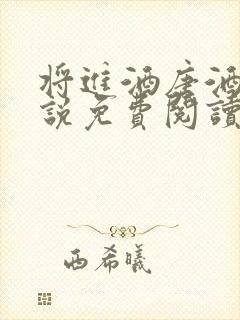 将進酒唐酒
說免費閱讀
西希曦